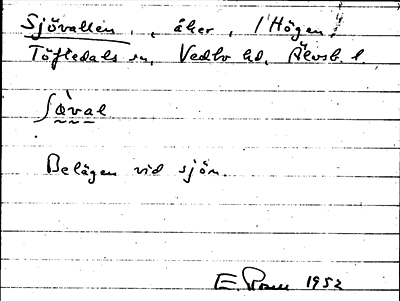 Sjövallen, åker, 1 Högen,
Töftedals sn, Vedbo hd, Älvsb. l.
ʃö̀val
Belägen vid sjön.
E. 1952